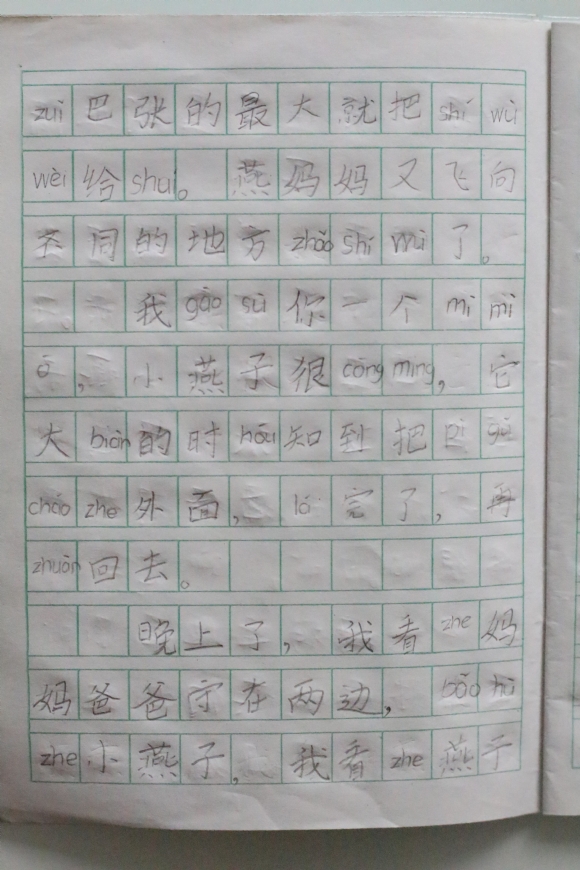 zuǐ巴张的最大就把shí wù
wèi给shuí。燕妈妈又飞向
不同的地方zhǎo shí wù了。
我gào sù你一个mì mì
ō,小燕子很cōng míng,它
大biàn的时hòu知到把pì gǔ
cháo zhe外面,lā完了,再
zhuǎn回去。
晚上了,我看zhe妈
妈爸爸守在两边,bǎo hù
zhe小燕子,我看zhe燕子